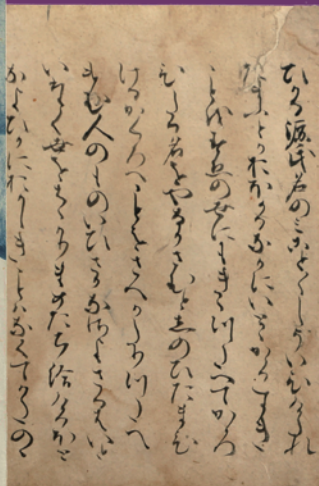 ひかる源氏名のみこと〱しういひけたれ
たまふとかおほかなるにいとゝかゝるすき
ことともをすゑの世にもきゝつたへてかろ
ひたる名をやなかさむとしのひたまひ
けるかくろへことをさへかたりつたへ
けむ人のものいひさかなさよさるはいと
いたく世をはゝかりまめたち給けるほと
なよひかにおかしきことはなくてかたのゝ